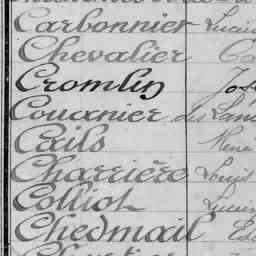 Carbonnier Lucien
Chevalier
Cromlin
Couanier des Lan
Cails René
Charrière Louis
Colliot Lucien
Chedmail Edo